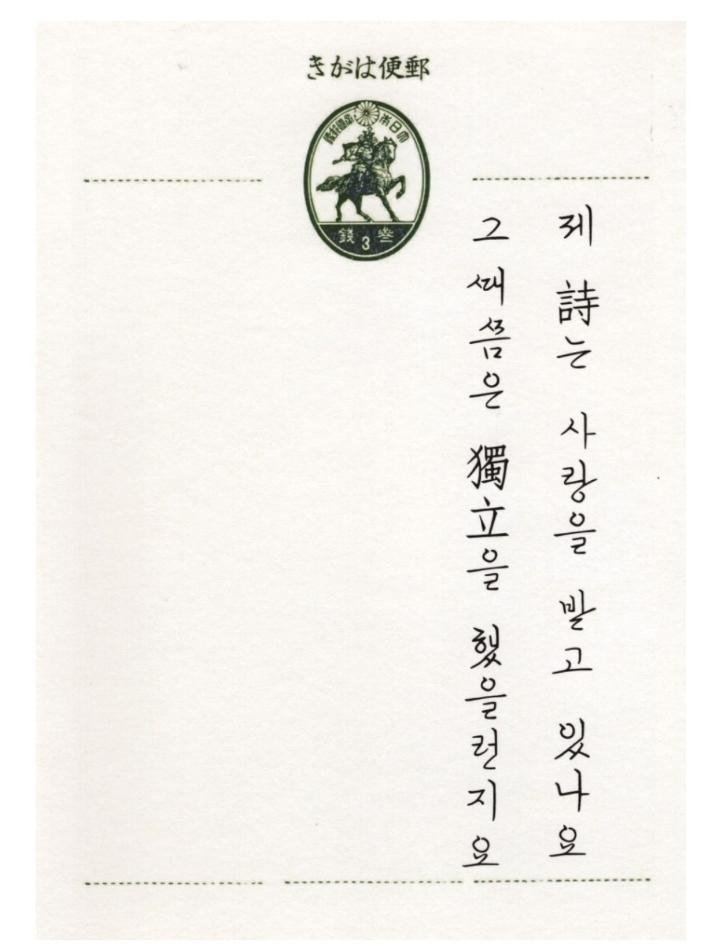 きがは便郵
大日本帝國郵便
參3錢
제 詩는 사랑을 받고 있나요
그 때쯤은 獨立을 했을런지요